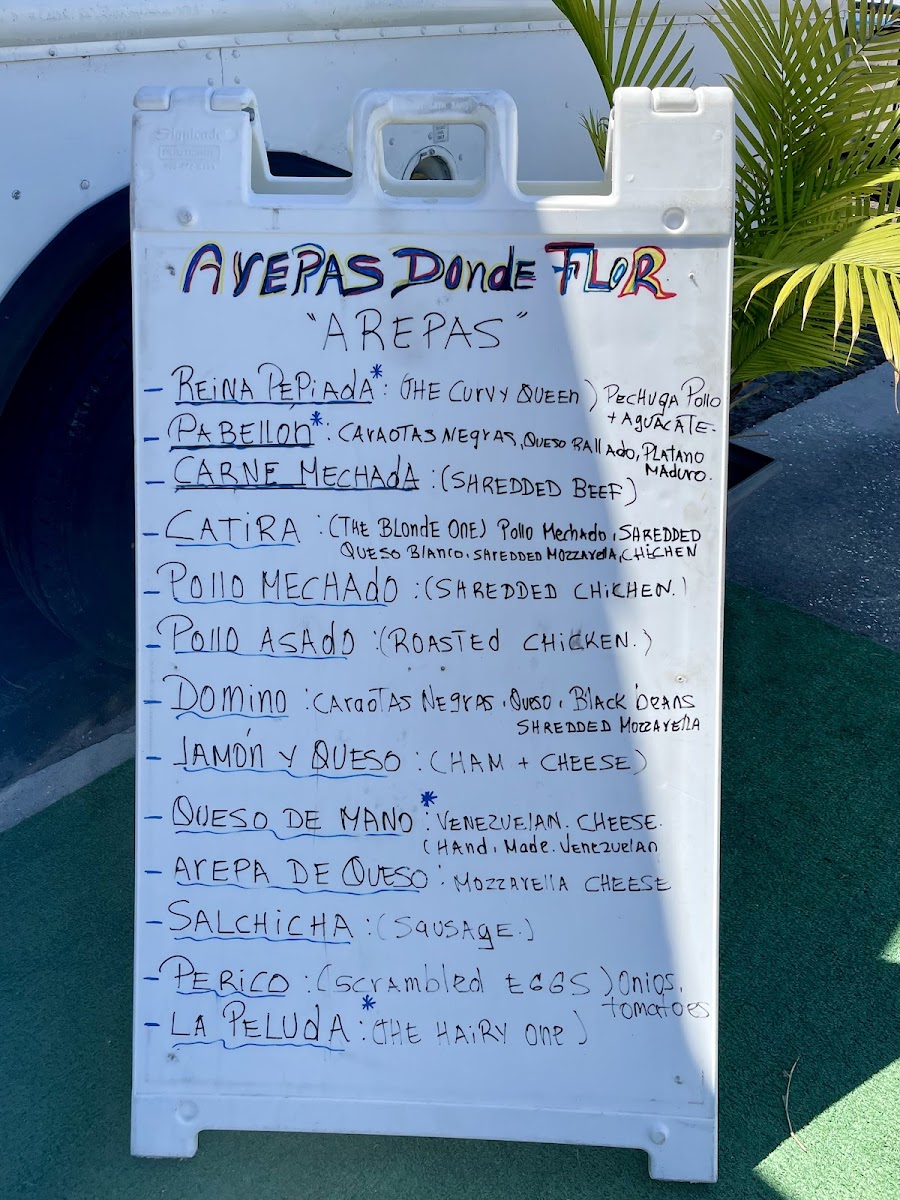 AREPAS DONDE FLOR
"AREPAS"
- REINA PEPIADA*: (THE CURVY QUEEN) PECHUGA POLLO
+ AGUACATE.
- PABELLÓN*: CARAOTAS NEGRAS, QUESO RALLADO, PLATANO
MADURO.
- CARNE MECHADA : (SHREDDED BEEF)
- CATIRA : (THE BLONDE ONE) POLLO MECHADO, SHREDDED
QUESO BLANCO, SHREDDED MOZZARELLA, CHICHEN
- POLLO MECHADO : (SHREDDED CHICHEN.)
- POLLO ASADO : (ROASTED CHICKEN.)
- DOMINO : CARAOTAS NEGRAS, QUESO, BLACK BEANS
SHREDDED MOZZARELLA
- JAMÓN Y QUESO : (HAM + CHEESE)
- QUESO DE MANO*: VENEZUELAN. CHEESE.
(HAND. MADE. VENEZUELAN
- AREPA DE QUESO : MOZZARELLA CHEESE
- SALCHICHA : (SAUSAGE.)
- PERICO : (SCRAMBLED EGGS) ONIOS,
TOMATOES
- LA PELUDA*: (THE HAIRY ONE)